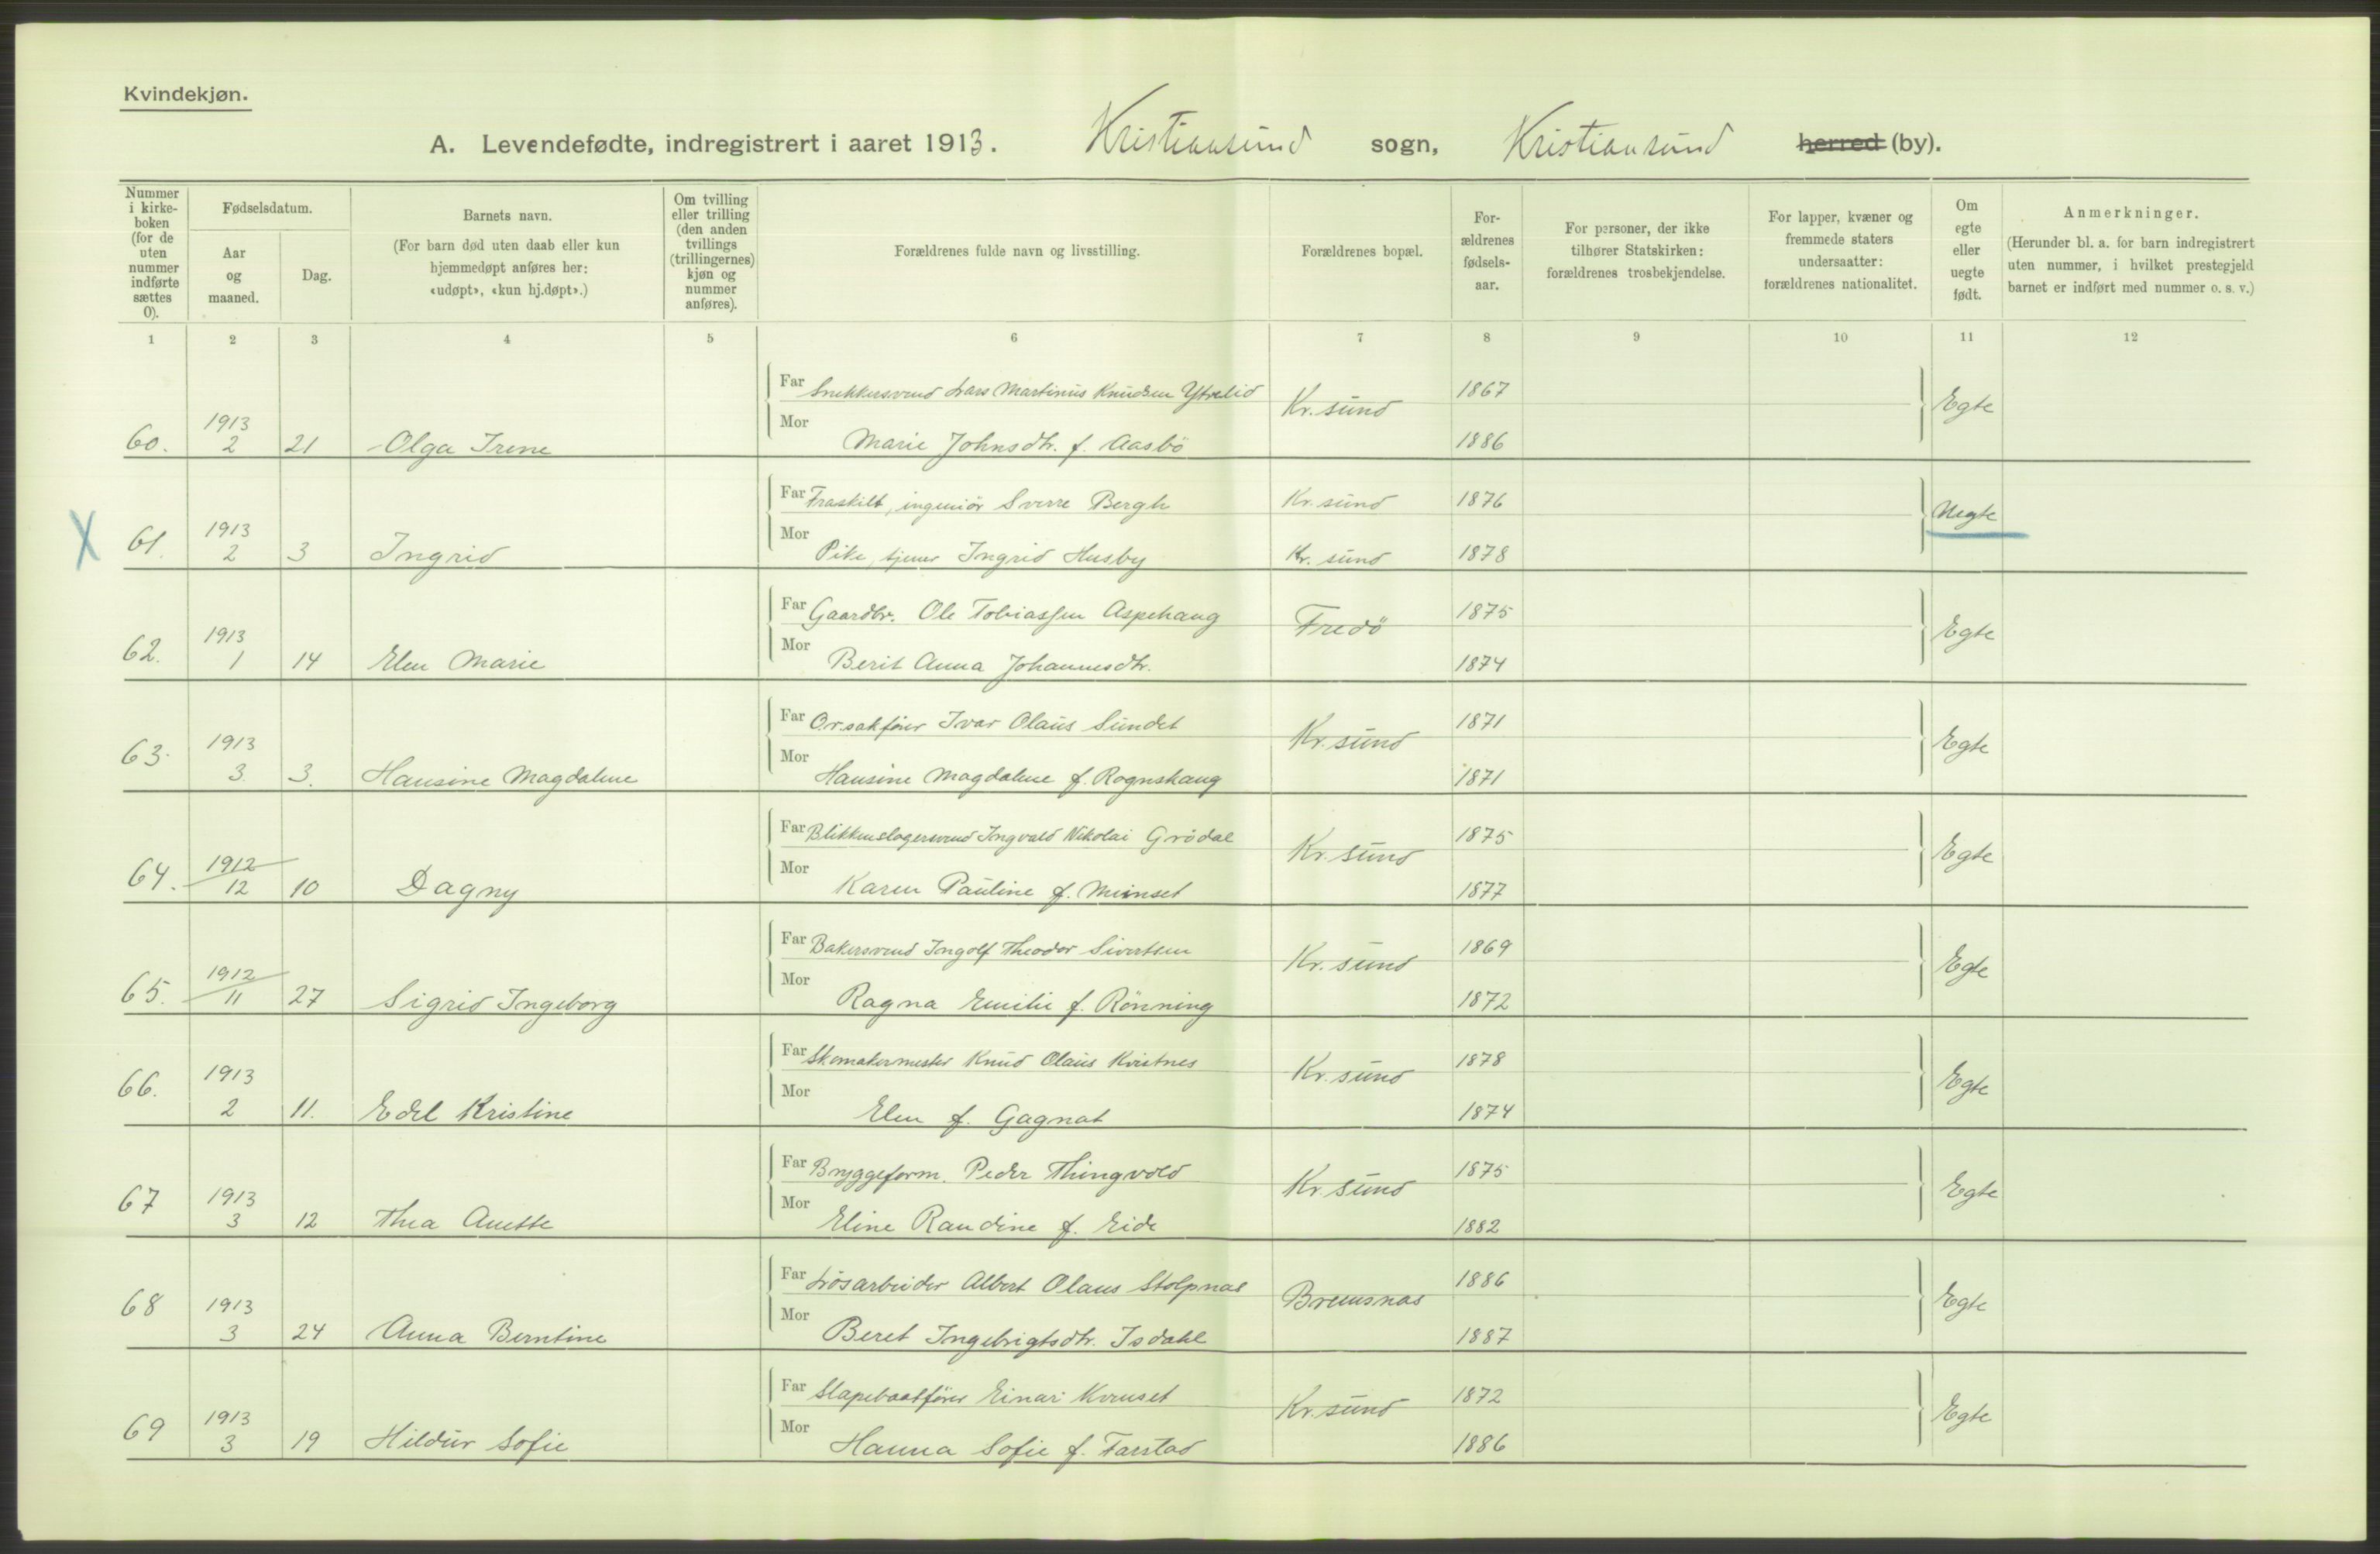 Kvindekjøn.
A. Levendefødte, indregistrert i aaret 1913. Kristiansund sogn, Kristiansund herred (by).
Nummer i kirkeboken (for de uten nummer indførte sættes 0).
Fødselsdatum.
Aar og maaned.
Dag.
Barnets navn.
(For barn død uten daab eller kun hjemmedøpt anføres her: «udøpt», «kun hj.døpt».)
Om tvilling eller trilling (den anden tvillings (trillingernes) kjøn og nummer anføres).
Forældrenes fulde navn og livsstilling.
Forældrenes bopæl.
Forældrenes fødselsaar.
For personer, der ikke tilhører Statskirken: forældrenes trosbekjendelse.
For lapper, kvæner og fremmede staters undersaatter: forældrenes nationalitet.
Om egte eller uegte født.
Anmerkninger.
(Herunder bl. a. for barn indregistrert uten nummer, i hvilket prestegjeld barnet er indført med nummer o. s. v.)
1 2 3 4 5 6 7 8 9 10 11 12
Far Snekkersvend Lars Martinus Knudsen Ytrelid Kr.sund 1867 Egte
60. 1913 2 21 Olga Irene Mor Marie Johnsdtr. f. Aasbö 1886
Far Fraskilt, ingeniör Sverre Bergh Kr.sund 1876 Uegte
X 61. 1913 2 3 Ingrid Mor Pike, tjener Ingrid Husby Kr.sund 1878
Far Gaardbr. Ole Tobiassen Aspehaug Fredö 1875 Egte
62. 1913 1 14 Elen Marie Mor Berit Anna Johannesdtr. 1874
Far O.r.sakförer Ivar Olaus Sundet Kr.sund 1871 Egte
63. 1913 3. 3. Hansine Magdalene Mor Hansine Magdalene f. Rognskaug 1871
Far Blikkenslagersvend Ingvald Nikolai Grödal Kr.sund 1875 Egte
64. 1912 12 10 Dagny Mor Karen Pauline f. 1877
Far Bakersvend Ingolf Theodor Sivertsen Kr.sund 1869 Egte
65. 1912 11 27 Sigrid Ingeborg Mor Ragna Emilie f. Rönning 1872
Far Skomakermester Knud Olaus Kvistnes Kr.sund 1878 Egte
66. 1913 2 11. Edel Kristine Mor Elen f. Gagnat 1874
Far Bryggeform. Peder Thingvold Kr.sund 1875 Egte
67 1913 3 12 Thea Anette Mor Eline Randine f. Eide 1882
Far Lösarbeider Albert Olaus Stolpnes Bremsnes 1886 Egte
68 1913 3 24 Anna Berntine Mor Beret Ingebrigtsdtr. Isdahl 1887
Far Slæpebaatförer Einar Kvenset Kr.sund 1872 Egte
69 1913 3 19 Hildur Sofie Mor Hanna Sofie f. Farstad 1886